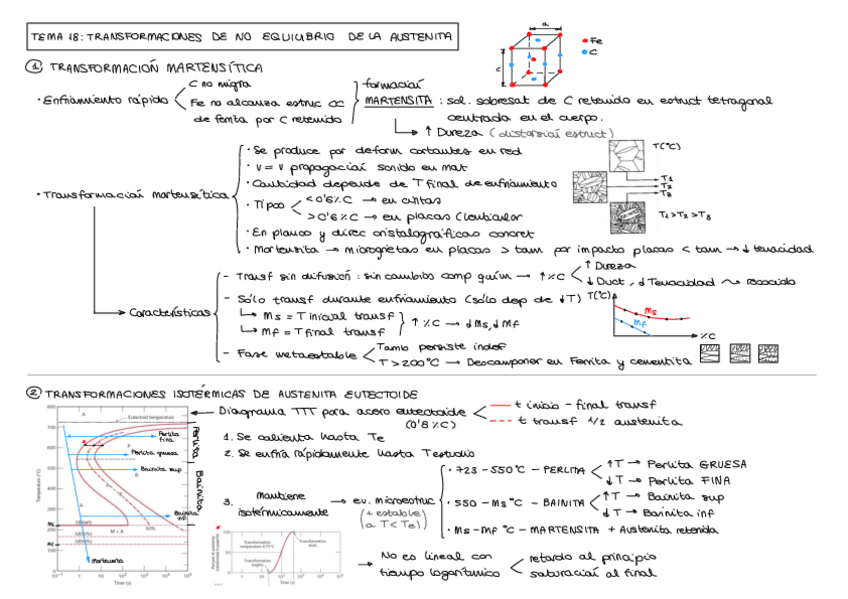 TEMA 18: TRANSFORMACIONES DE NO EQUILIBRIO DE LA AUSTENITA
a
Fe
C
c
① TRANSFORMACIÓN MARTENSÍTICA
· Enfriamiento rápido
C no migra
Fe no alcanza estruc CC
de ferrita por C retenido
formación
MARTENSITA : sol. sobresat de C retenido en estruct tetragonal
centrada en el cuerpo.
↑ Dureza (distorsión estruct)
· Transformación martensítica
· Se produce por deform cortantes en red
· V = V propagación sonido en mat
· Cantidad depende de T final de enfriamiento
· Tipos
< 0'6% C → en cintas
> 0'6% C → en placas (lenticular
· En planos y direc cristalográficas concret
· Martensita → microgrietas en placas > tam por impacto placas < tam → ↓ tenacidad
T(°C)
T1
T2
T3
T1>T2>T3
Características
- Transf sin difusión : sin cambios comp quím → ↑%C
↑ Dureza
↓ Duct, ↓ Tenacidad ⤳ revenido
- Sólo transf durante enfriamiento (sólo dep de ↓T)
Ms = T inicial transf
Mf = T final transf
↑ %C → ↓Ms, ↓Mf
- Fase metaestable
Tamb persiste indef
T > 200°C → Descomponer en Ferrita y cementita
T(°C)
Ms
Mf
%C
② TRANSFORMACIONES ISOTÉRMICAS DE AUSTENITA EUTECTOIDE
← Diagrama TTT para acero eutectoide
(0'8%C)
t inicio - final transf
t transf 1/2 austenita
1. Se calienta hasta Te
2. Se enfría rápidamente hasta T estudio
3. Mantiene
isotérmicamente
→ ev. microestruc
(+ estable)
(a T < Te)
· 723 - 550°C - PERLITA
↑T → Perlita GRUESA
↓T → Perlita FINA
· 550 - Ms °C - BAINITA
↑T → Bainita sup
↓T → Bainita inf
· Ms - Mf °C - MARTENSITA + Austenita retenida
→ No es lineal con
tiempo logarítmico
retardo al principio
saturación al final
Eutectoid temperature
A
Perlita fina
Perlita gruesa
Bainita sup
Bainita inf
Martensita
Perlita
Bainita
Ms
Mf
M + A
50%
Temperature (°C)
Time (s)
Transformation temperature 675°C
Transformation begins
Transformation ends
Time (s)